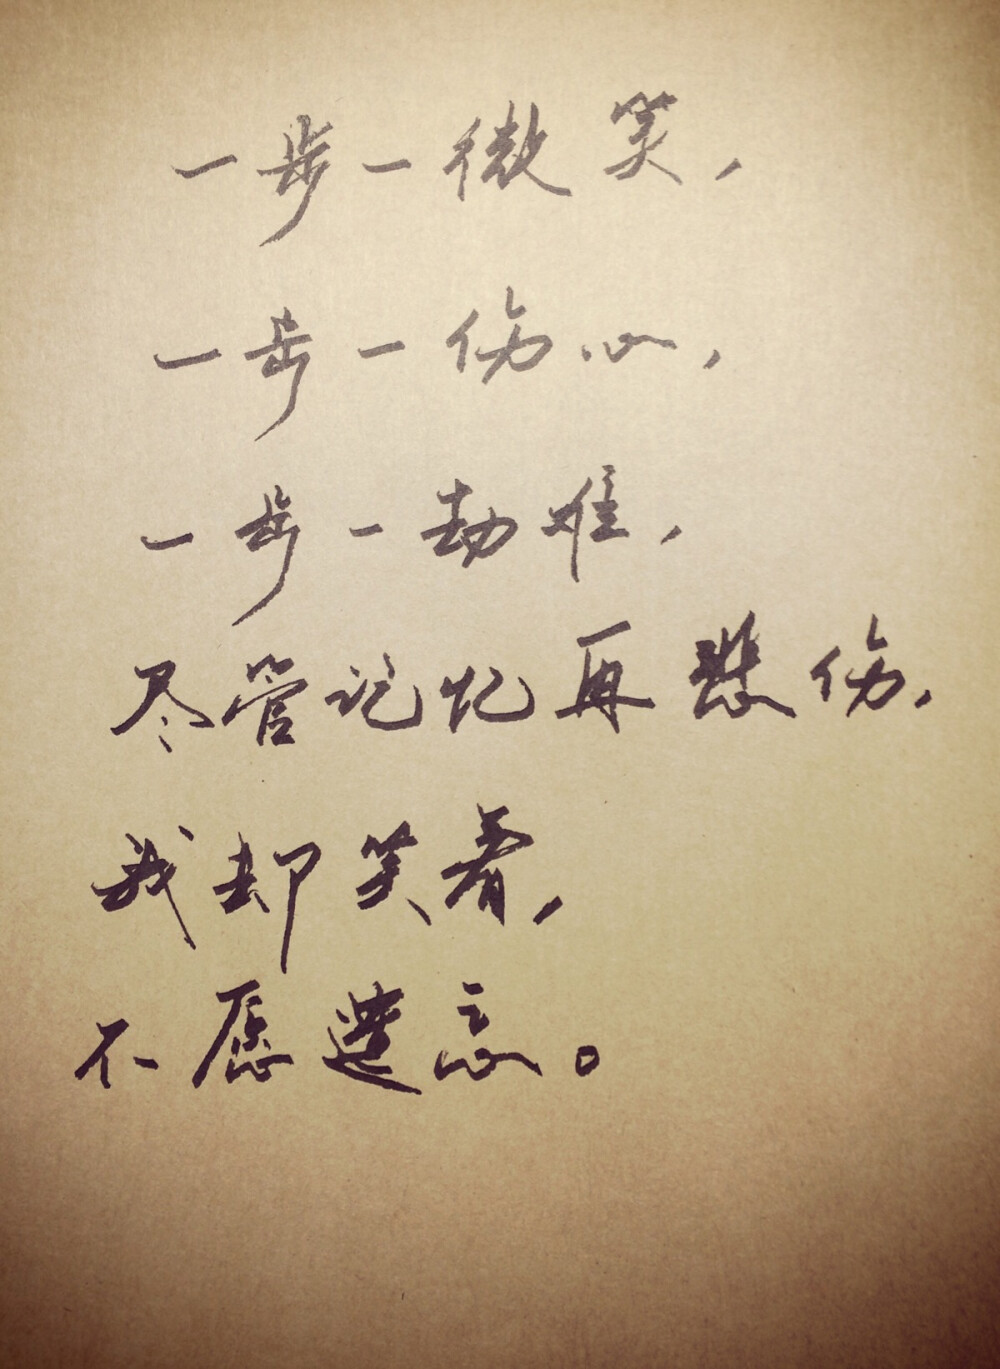 一步一微笑，
一步一伤心，
一步一劫难，
尽管记忆再悲伤，
我却笑着，
不愿遗忘。